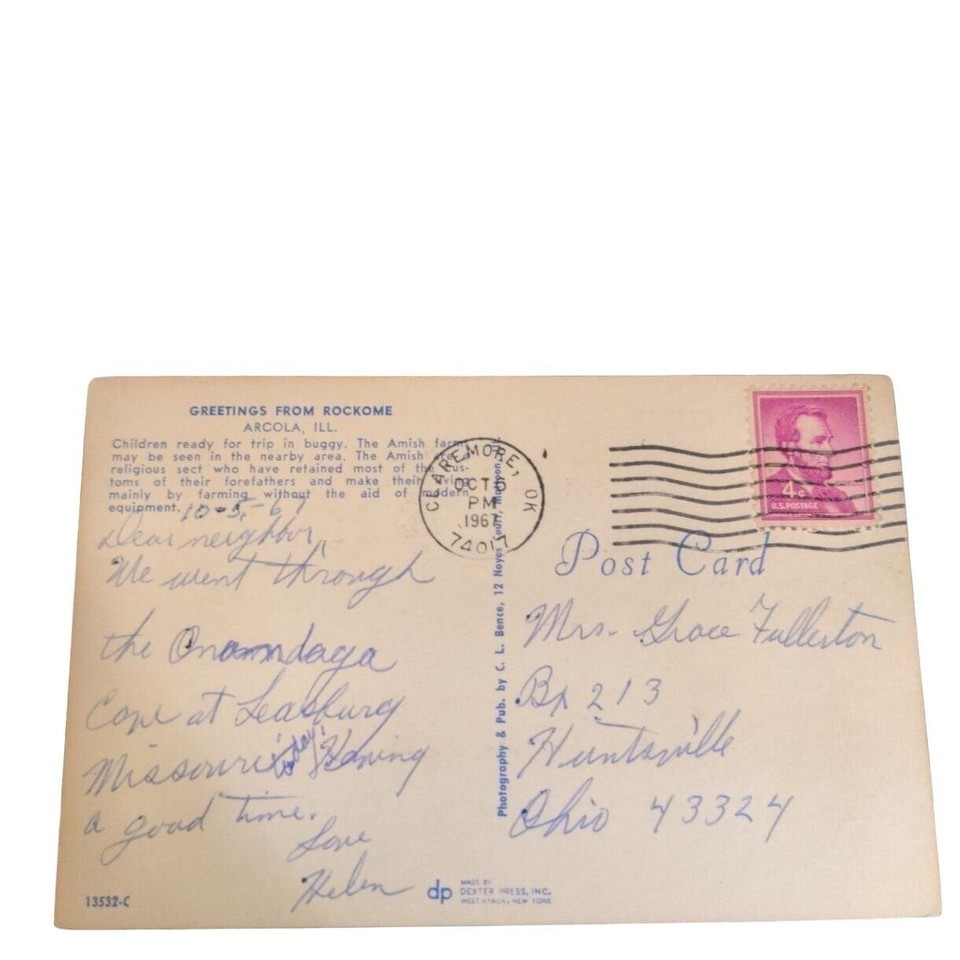 GREETINGS FROM ROCKOME
ARCOLA, ILL.
Children ready for trip in buggy. The Amish farms
may be seen in the nearby area. The Amish
religious sect who have retained most of the cus-
toms of their forefathers and make their living
mainly by farming without the aid of modern
equipment.
10-5-67
Dear neighbor,
We went through
the Onondaga
Cave at Leasburg
Missouri today. Having
a good time.
Love
Helen
13532-C
dp
MADE BY
DEXTER PRESS, INC.
WEST NYACK, NEW YORK
Photography & Pub. by C. L. Bence, 12 Noyes Court, Mattoon
CLAREMORE, OK
OCT 5
PM
1967
74017
4¢
U.S. POSTAGE
Post Card
Mrs. Grace Fullerton
Bx 213
Huntsville
Ohio 43324